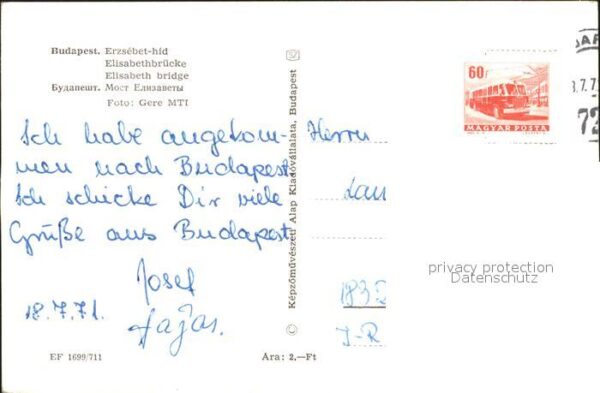 Budapest. Erzsébet-híd
Elisabethbrücke
Elisabeth bridge
Будапешт. Мост Елизаветы
Foto: Gere MTI
Ich habe angekom-
men nach Budapest
Ich schicke Dir viele
Grüße aus Budapest
Josef
18.7.71.
EF 1699/711
Képzőművészeti Alap Kiadóvállalata, Budapest
©
Ára: 2,—Ft
60f
MAGYAR POSTA
Herrn
privacy protection
Datenschutz